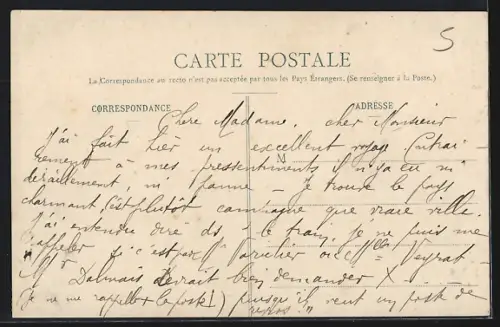 5
CARTE POSTALE
La Correspondance au recto n'est pas acceptée par tous les Pays Étrangers. (Se renseigner à la Poste.)
CORRESPONDANCE ADRESSE
Chère Madame, cher Monsieur
J'ai fait hier un excellent voyage. Contrai-
rement à mes pressentiments il n'y a eu ni
M
déraillement, ni panne — je trouve le pays
charmant, c'est plutôt campagne que vraie ville.
J'ai entendu dire ds le train, je ne puis me
rappeler si c'est par Mr ou Melle Veyrat —
"Mr Dalmais devrait bien demander X
(je ne me rappelle le poste!) puisqu'il veut un poste de